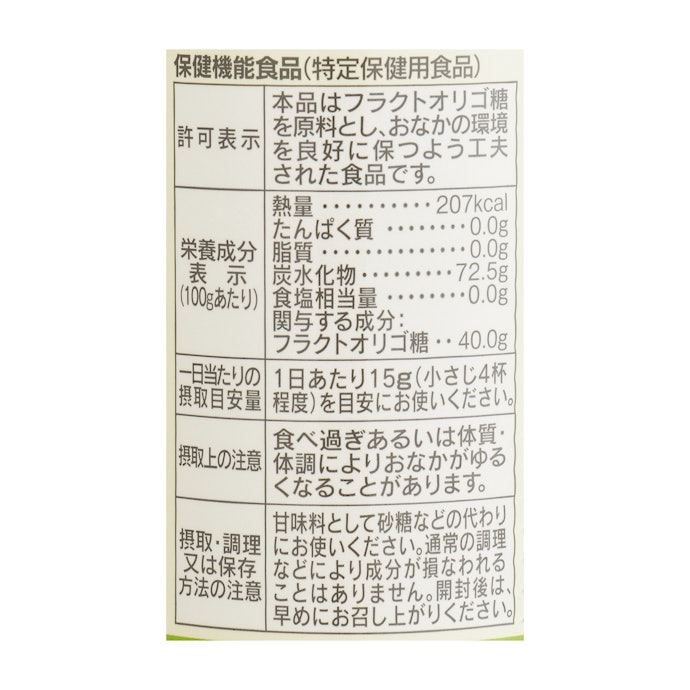 保健機能食品(特定保健用食品)
許可表示
本品はフラクトオリゴ糖
を原料とし、おなかの環境
を良好に保つよう工夫
された食品です。
栄養成分
表示
(100gあたり)
熱量 ・・・・・・・・・・ 207kcal
たんぱく質 ・・・・・・・・ 0.0g
脂質 ・・・・・・・・・・・ 0.0g
炭水化物 ・・・・・・・・ 72.5g
食塩相当量 ・・・・・・・・ 0.0g
関与する成分:
フラクトオリゴ糖 ・・ 40.0g
一日当たりの
摂取目安量
1日あたり15g(小さじ4杯
程度)を目安にお使いください。
摂取上の注意
食べ過ぎあるいは体質・
体調によりおなかがゆる
くなることがあります。
摂取・調理
又は保存
方法の注意
甘味料として砂糖などの代わり
にお使いください。通常の調理
などにより成分が損なわれる
ことはありません。開封後は、
早めにお召し上がりください。